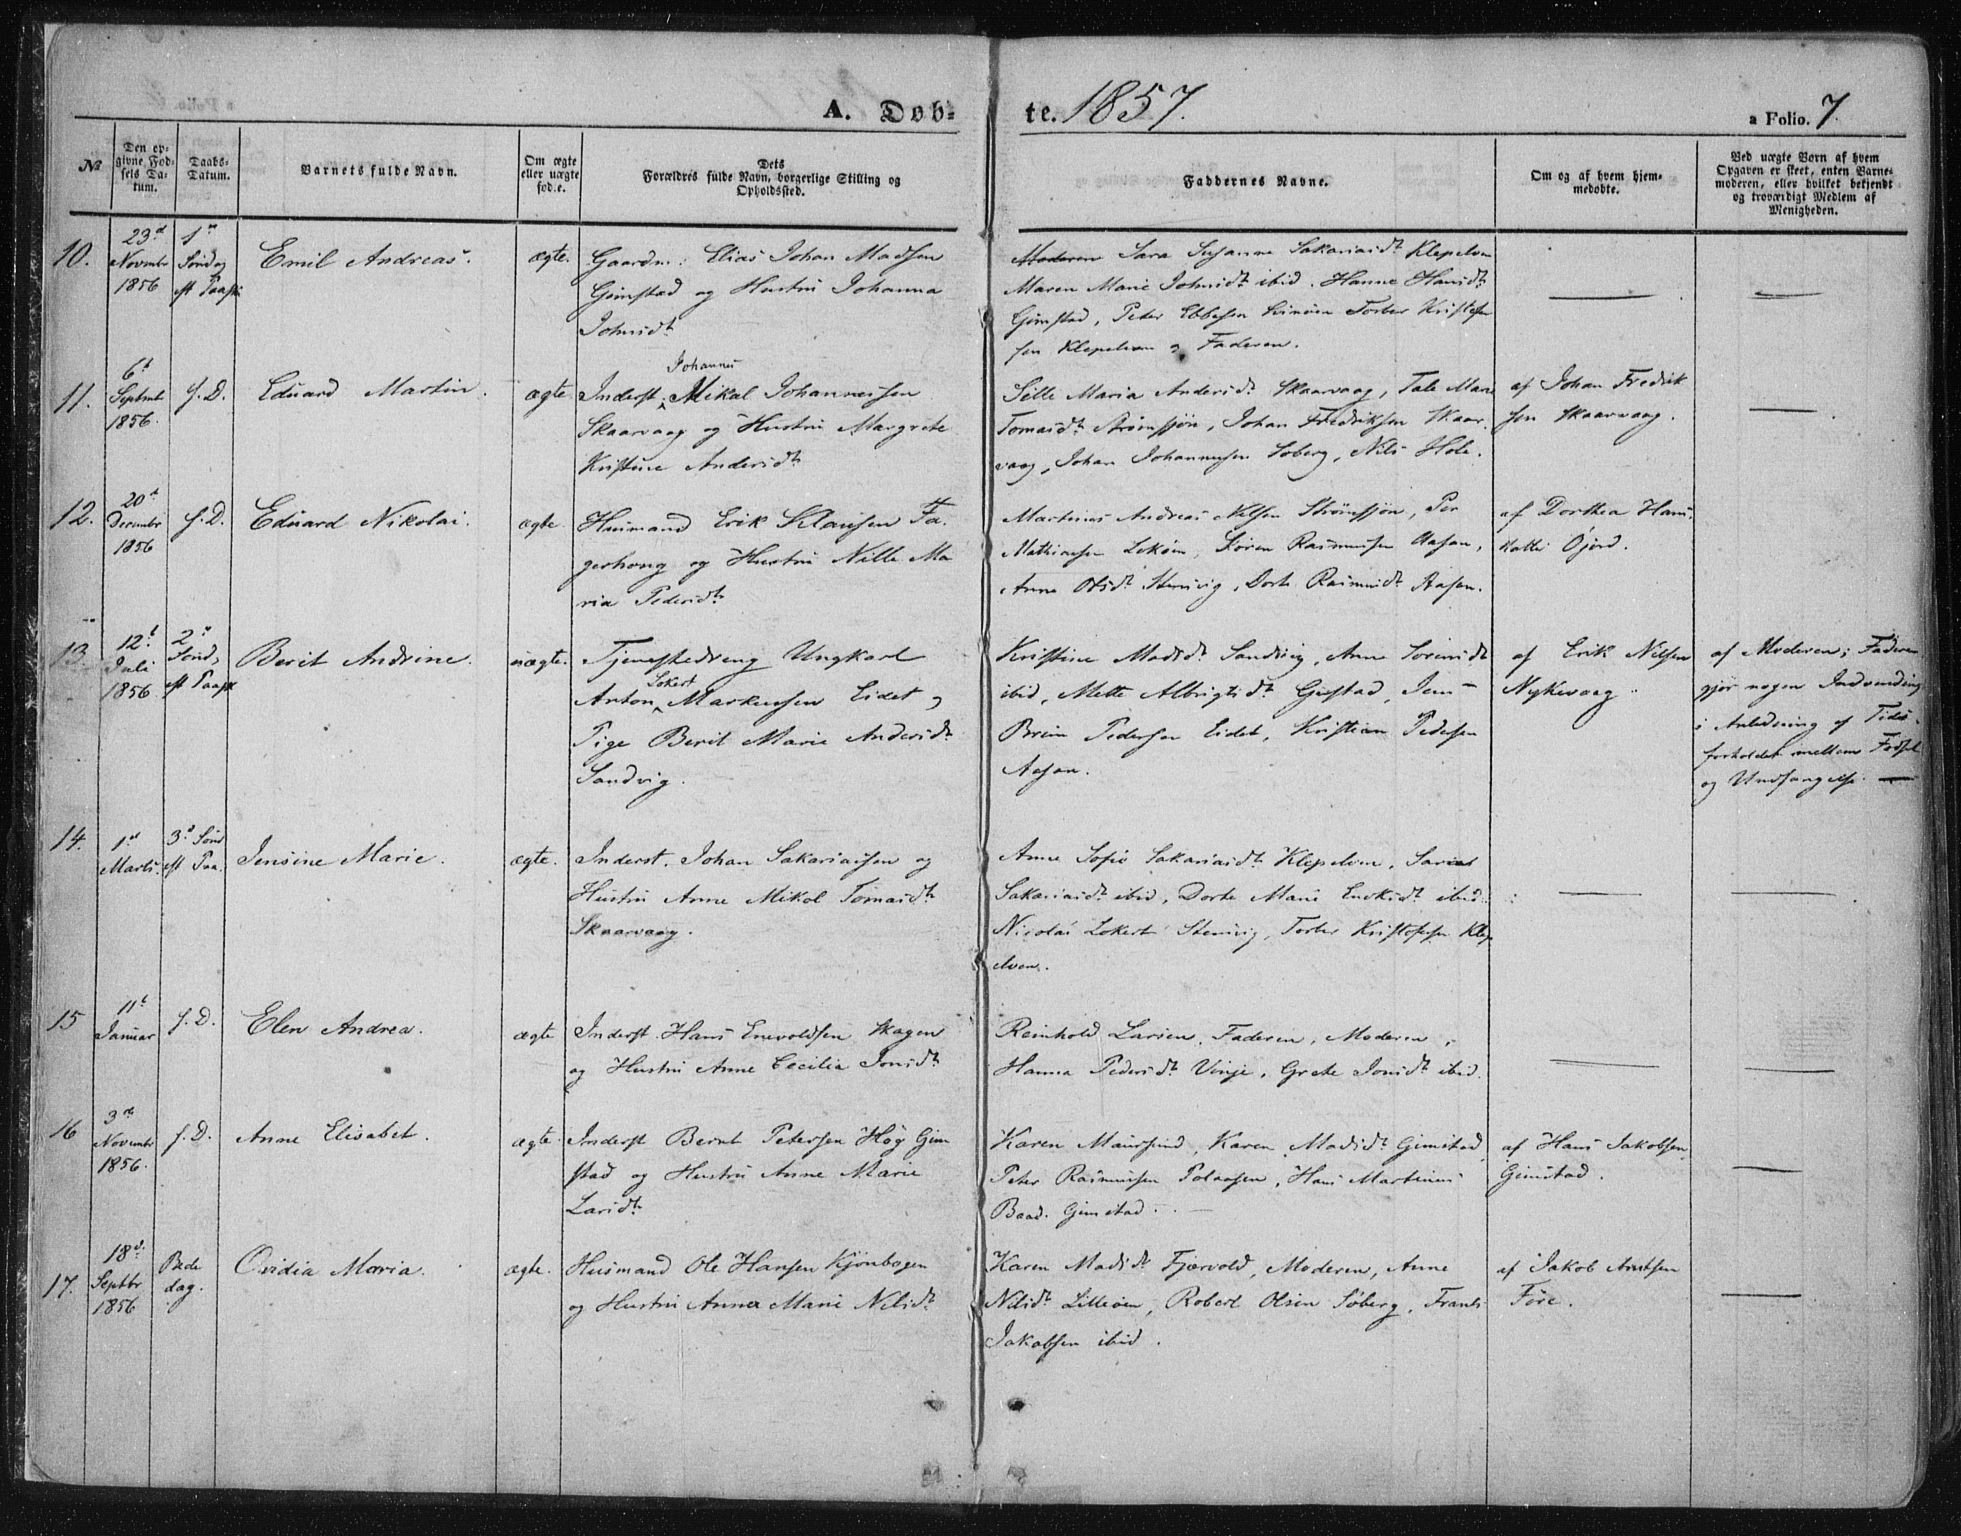 A. Døb-
te. 1857.
a Folio. 7.
№
Den op-
givne Fød-
sels Da-
tum.
Daabs-
Datum.
Barnets fulde Navn.
Om ægte
eller uægte
fød.e.
Dets
Forældres fulde Navn, borgerlige Stilling og
Opholdssted.
Faddernes Navne.
Om og af hvem hjem-
medøbte.
Ved uægte Børn af hvem
Opgaven er skeet, enten Barne-
moderen, eller hvilket bekjendt
og troværdigt Medlem af
Menigheden.
10.
23d
Novembr
1856
1n
Søndag
eft Paaske
Emil Andreas.
ægte.
Gaardm: Elias Johan Madsen
Gimstad og Hustru Johanna
Johnsdt
Moderen Sara Susanna Sakariasdt Klepelven
Maren Marie Johnsdt ibid. Hanne Hansdt
Gimstad, Peter Ebbesen Torber Kristofer
sen Klepelven og Faderen.
11.
6t
Septmbr
1856.
f.D.
Eduard Martin.
ægte
Johannes
Inderst Mikal Johannessen
Skaarvaag og Hustru Margrete
Kristine Andersdt
Sille Maria Andersdt Skaarvaag, Tale Marie
Tomasdt Strømsjøn, Johan Fredriksen Skaar
vaag, Johan Johannessen Søberg, Nils Hole.
af Johan Fredrik
sen Skaarvaag.
12.
20d
Decembr
1856
f.D.
Eduard Nikolai.
ægte
Husmand Erik Klausen Fa-
gerhoug og Hustru Nille Ma
ria Pedersdt
Martinus Andreas Nilsen Strømsjøn, Per
Mathiassen Søren Rasmussen Aasan,
Anne Olsdt Stenvig, Dorte Rasmusdt Aasan.
af Dorthea Hans
datter Øjord.
13.
12t
Juli
1856
2n
Sønd,
eft Paask
Berit Andrine.
uægte.
Tjenestedreng Ungkarl
Lokert
Anton Markussen Eidet og
Pige Berit Marie Andersdt
Sandvig.
Kristine Madsdt Sandvig, Ane Sørensdt
ibid, Mette Albrigtsdt Gustad, Jens
Brun Pedersen Eidet, Kristian Pedersen
Aasan.
af Erik Nilsen
Nykevaag.
af Moderen; Faderen
gjør nogen Indvending
i Anledning af Tids-
forholdet mellem Fødsel
og Undfangelse.
14.
1d
Marts.
3d Sønd
eft Paa.
Jensine Marie.
ægte.
Inderst. Johan Sakariassen og
Hustru Anne Mikal Tomasdt
Skaarvaag.
Anne Sofie Sakariasdt Klepelven, Sara
Sakariasdt ibid, Dorte Marie ibid
Nicolai Lokert Stenvig, Torber Kristofersen Klep
elven.
15
11t
Januar
f.D.
Elen Andrea.
ægte
Inderst Hans Enevoldsen Skagen
og Hustru Anne Cecilia Jonsdt
Reinhold Larsen, Faderen, Moderen,
Hanna Pedersdt Vinje, Grete Jonsdt ibid.
16
3d
Novembr
1856.
f.D.
Anne Elisabet.
ægte
Inderst Bernt Petersen Høg Gim
stad og Hustru Anne Marie
Larsdt
Karen Maursund, Karen Madsdt Gimstad
Peter Rasmussen Polaasen, Hans Martinus
Baad. Gimstad.
af Hans Jakobsen
Gimstad.
17.
18d.
Septbr
1856
Bede
dag.
Ovidia Maria.
ægte.
Husmand Ole Hansen Kjønbogen
og Hustru Anna Marie Nilsdt
Karen Madsdt Fjærvold, Moderen, Anne
Nilsdt Lilleøen, Robert Olsen Søberg, Frants
Jakobsen ibid.
af Jakob Arntsen
Føre.